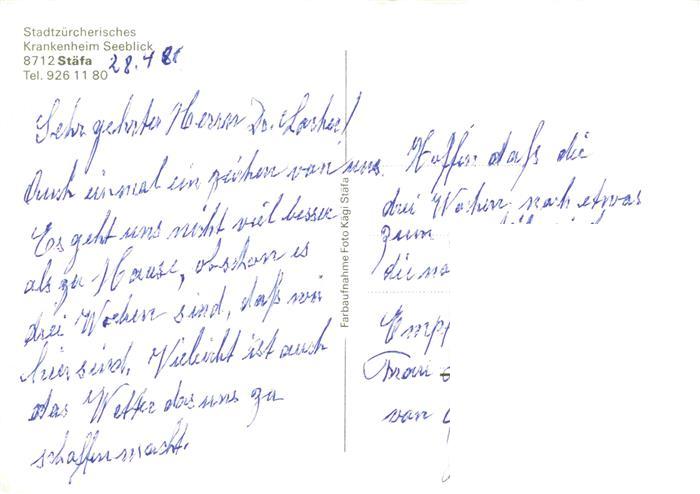 Stadtzürcherisches
Krankenheim Seeblick
8712 Stäfa
Tel. 926 11 80
28.4
Sehr geehrter Herrn Dr.
Auch einmal ein zeichen von uns.
Es geht uns nicht viel besser
als zu Hause, obschon es
drei Wochen sind, daß wir
hier sind. Vieleicht ist auch
das Wetter das uns zu
schaffen macht.
Farbaufnahme Foto Kägi Stäfa
Hoffen daß die
drei Wochen noch etwas
zum
die
Frau
von